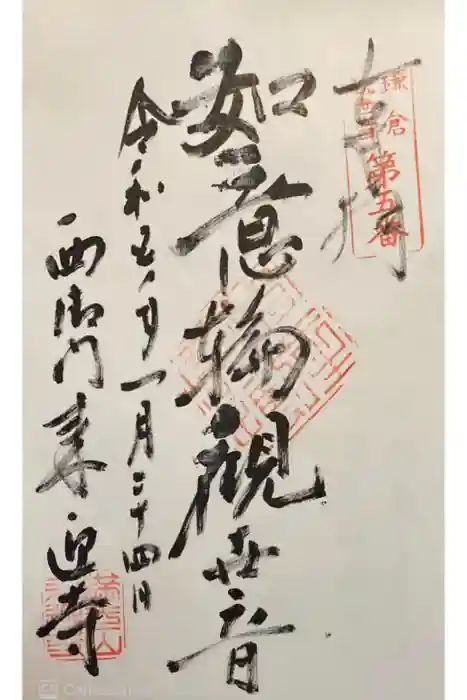 奉拝
鎌倉
第五番
如意輪観世音
令和五年一月二十四日
西御門 来迎寺